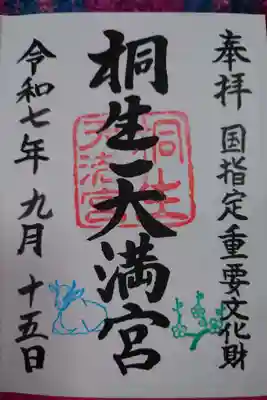 奉拝 国指定重要文化財
桐生天満宮
令和七年 九月 十五日
桐生
天満宮